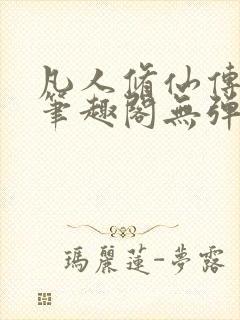 凡人脩仙傳
筆趣閣無彈
瑪麗蓮-夢露